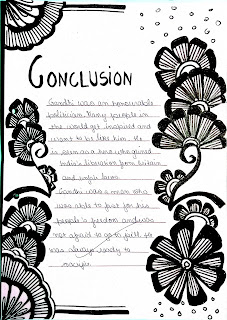 CONCLUSION
Gandhi was an honourable
politician. Many people in
the world get inspired and
want to be like him. He
is seen as a hero who gained
India's liberation from Britain
and
Gandhi was a man who
was able to fast for his
people's freedom and was
not afraid to go to jail. He
was always ready to